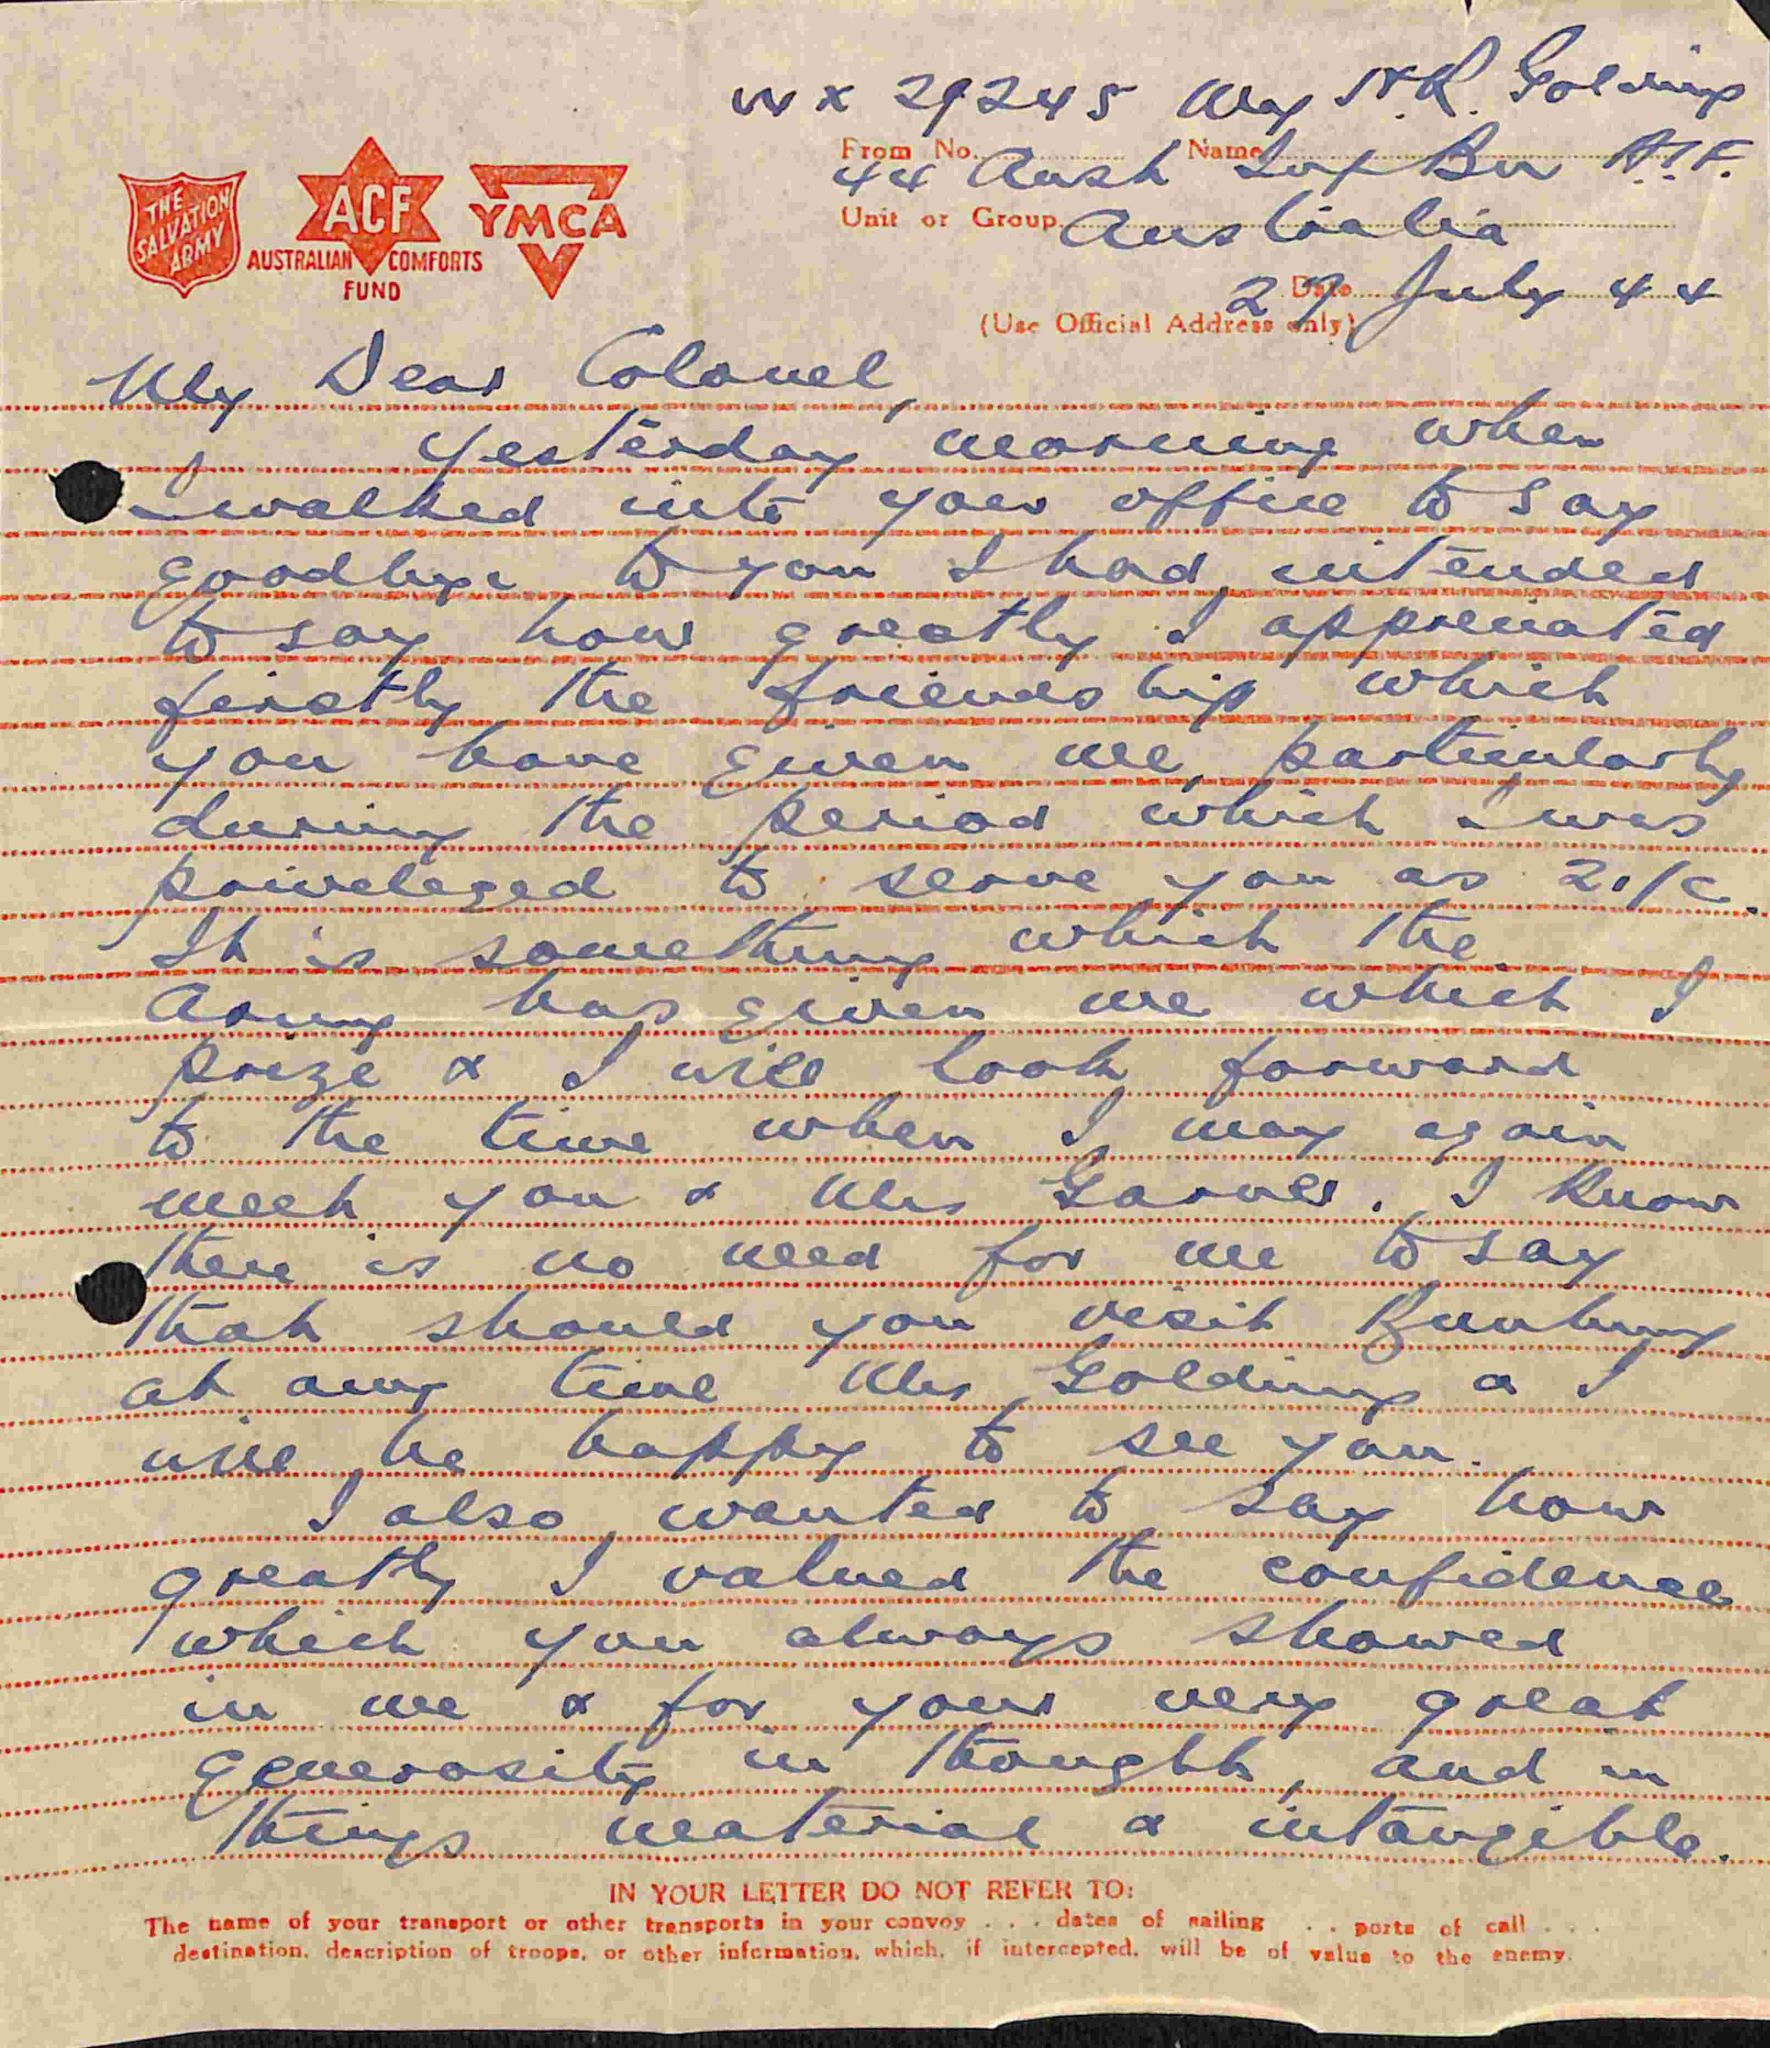 WX 29245 Maj N.R. Golding
From No. Name
44 Aust Inf Bn A.I.F.
Unit or Group Australia
Date 27 July 44
(Use Official Address only)
THE SALVATION ARMY
ACF
AUSTRALIAN COMFORTS FUND
YMCA
My Dear Colonel,
Yesterday morning when
I walked into your office to say
goodbye to you I had intended
to say how greatly I appreciated
firstly the friendship which
you have given me, particularly
during the period which I was
priveleged to serve you as 2i/c.
It is something which the
Army has given me which I
prize & I will look forward
to the time when I may again
meet you & Mrs Garner. I know
there is no need for me to say
that should you visit Bunbury
at any time Mrs Golding & I
will be happy to see you.
I also wanted to say how
greatly I valued the confidence
which you always showed
in me & for your very great
generosity in thought, and in
things material & intangible.
IN YOUR LETTER DO NOT REFER TO:
The name of your transport or other transports in your convoy . . . dates of sailing . . ports of call . . .
destination, description of troops, or other information, which, if intercepted, will be of value to the enemy.